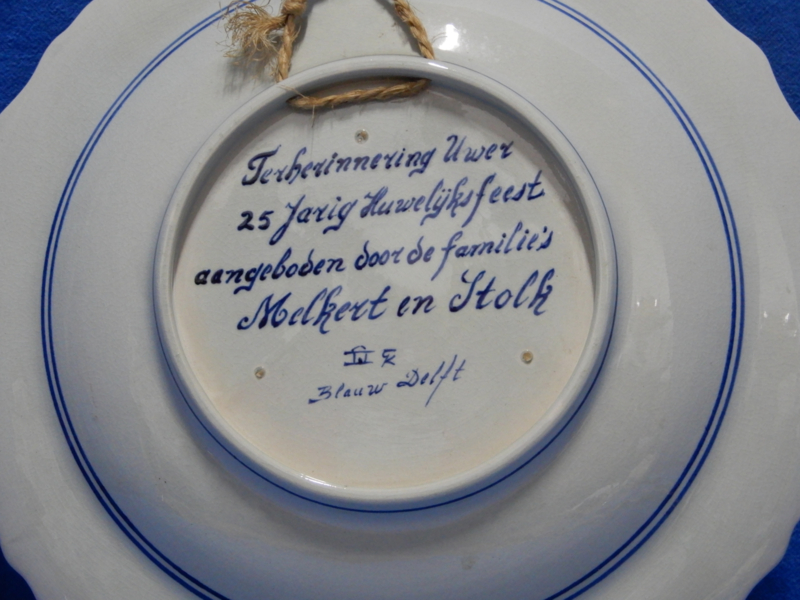 Terherinnering Uwer
25 Jarig Huwelijksfeest
aangeboden door de familie's
Melkert en Stolk
Blauw Delft